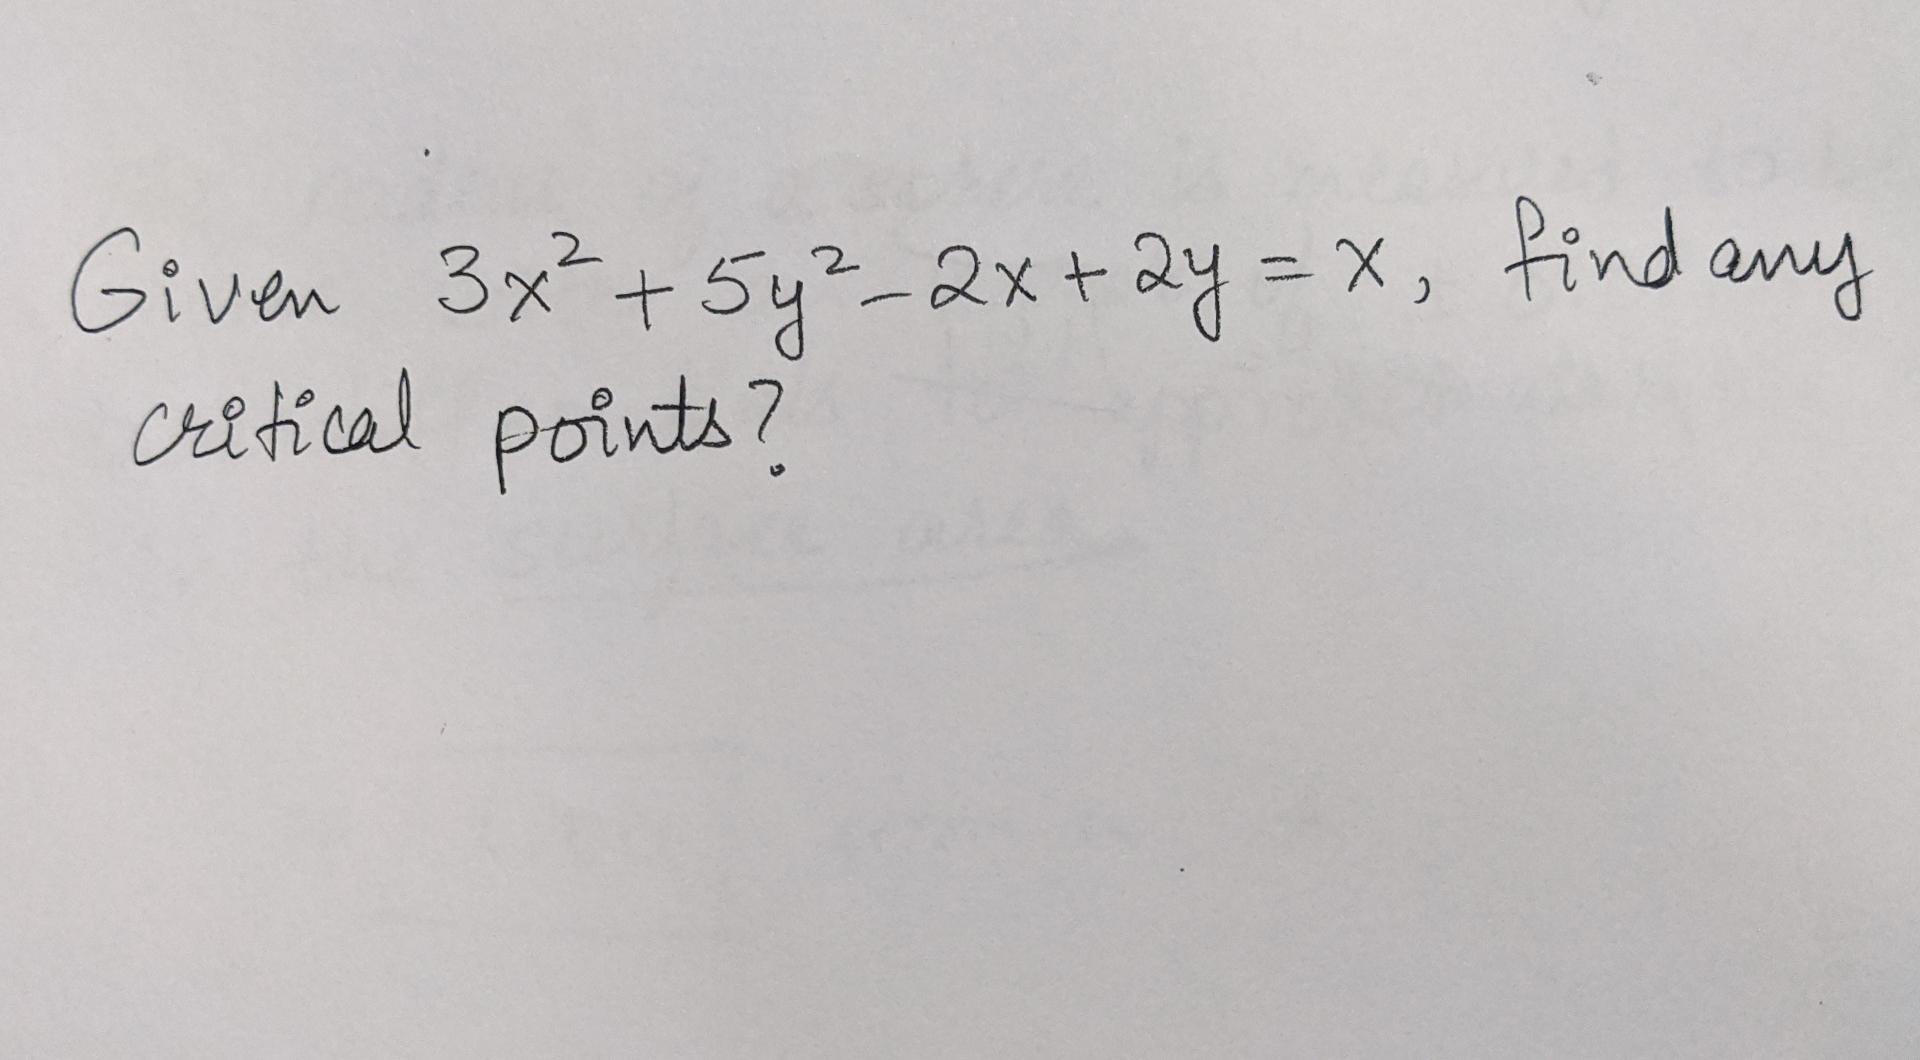 Given 3x² + 5y² - 2x + 2y = x, find any
critical points?